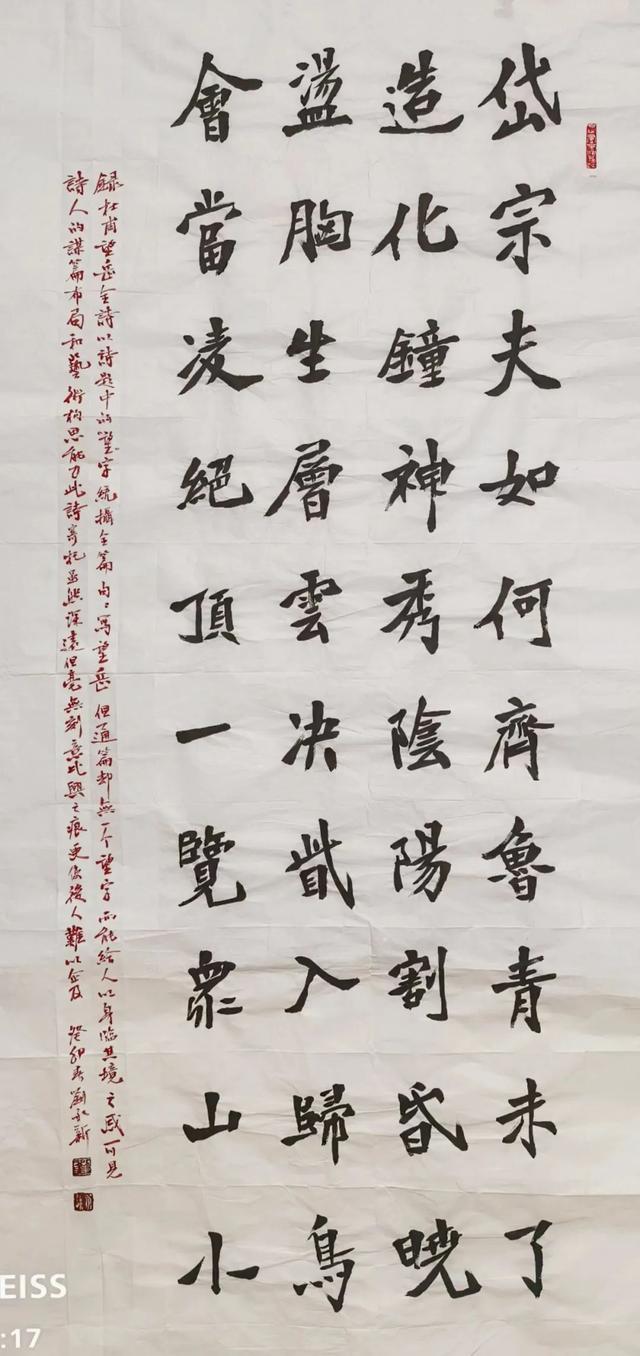 岱宗夫如何齊魯青未了
造化鐘神秀陰陽割昏曉
盪胸生層雲決眥入歸鳥
會當凌絕頂一覽眾山小
錄杜甫望岳全詩以詩題中的望字統攝全篇句々寫望岳但通篇却無一个望字而能給人以身臨其境之感可見
詩人的謀篇布局和藝術构思能力此詩寄托虽然深遠但毫無刻意比興之痕更使後人難以企及 癸卯春劉永新
EISS
:17